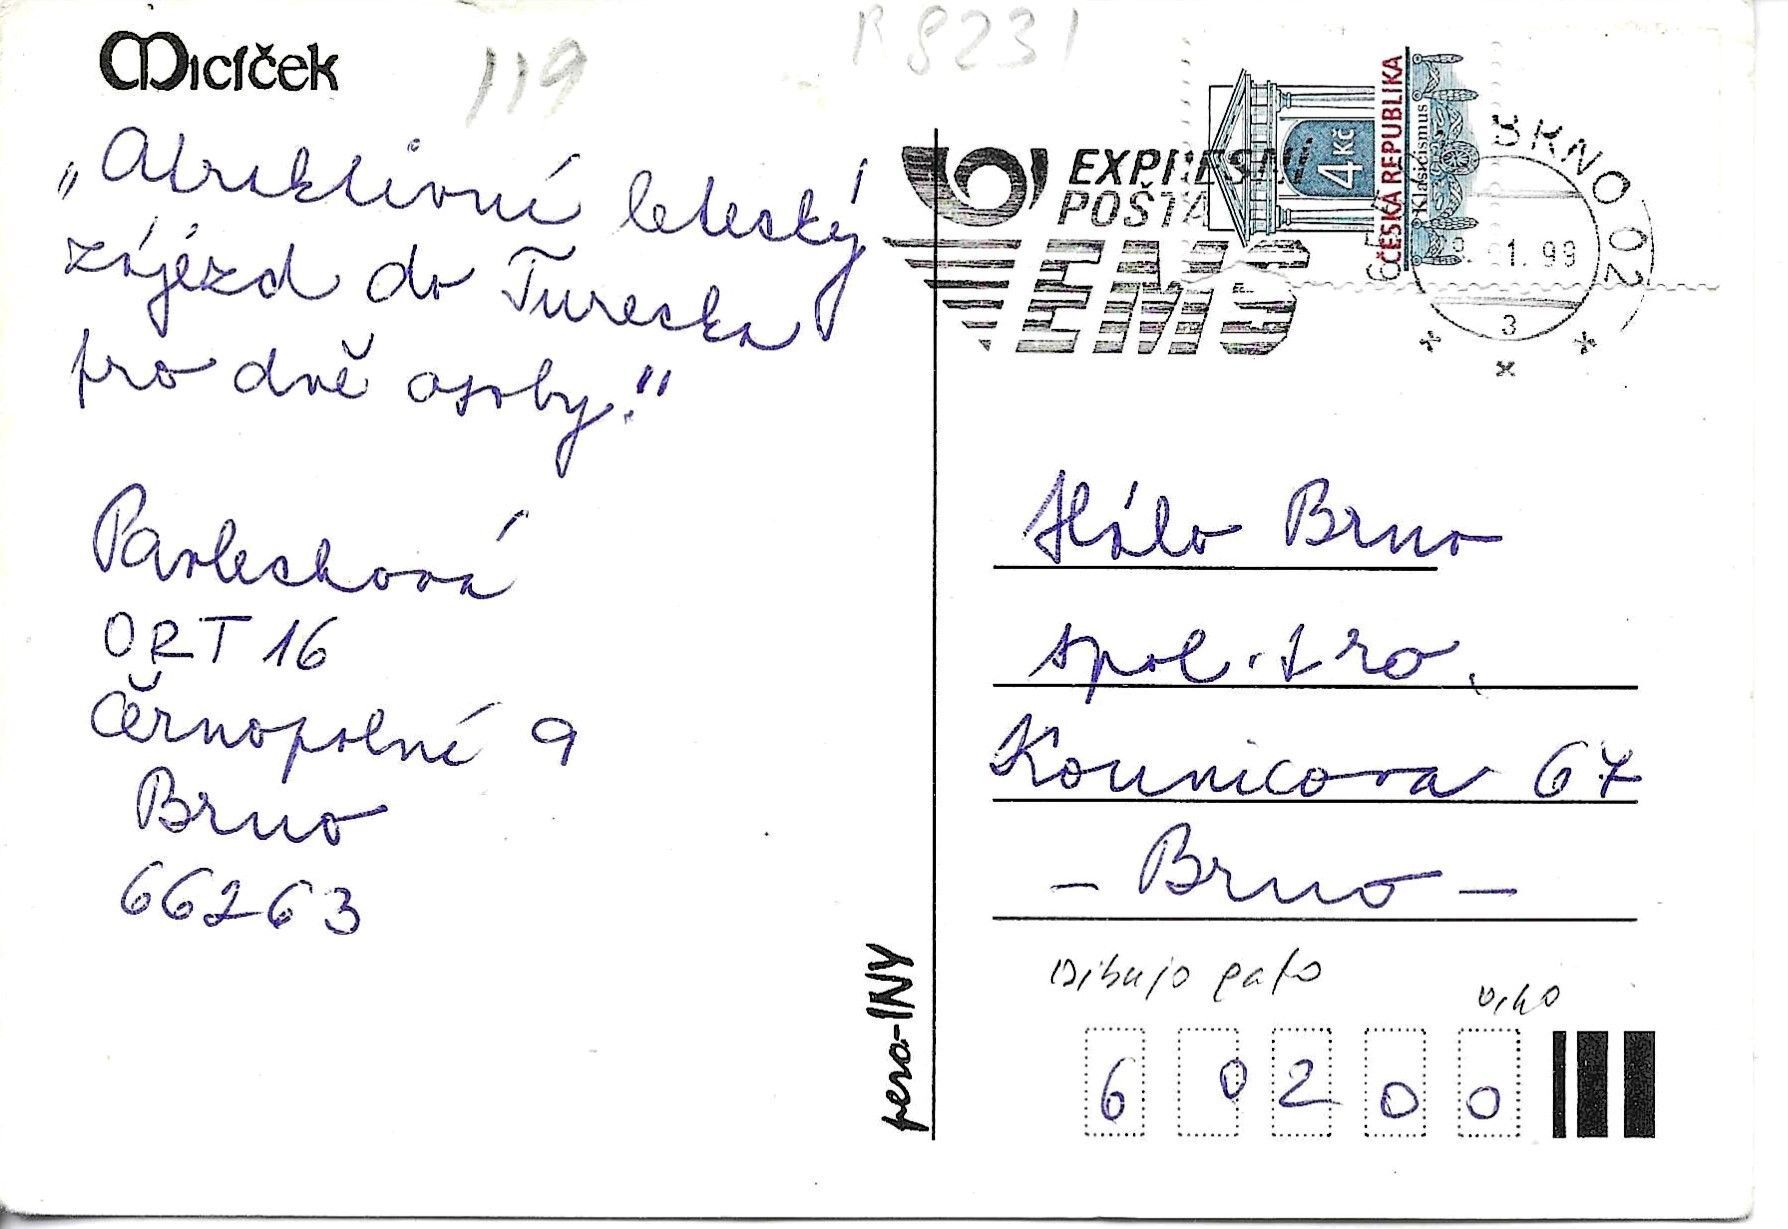 Micíček
119
R 8231
„Atraktivní letecký
zájezd do Turecka
pro dvě osoby."
Pavlechová
ORT 16
Černopolní 9
Brno
66263
pero-INY
EXPRESNÍ
POŠTA
EMS
4 Kč
ČESKÁ REPUBLIKA
Klasicismus
BRNO 02
1. 99
3
Hálo Brno
spol. s ro.
Kounicova 67
- Brno -
Dibujo gato
6 0 2 0 0